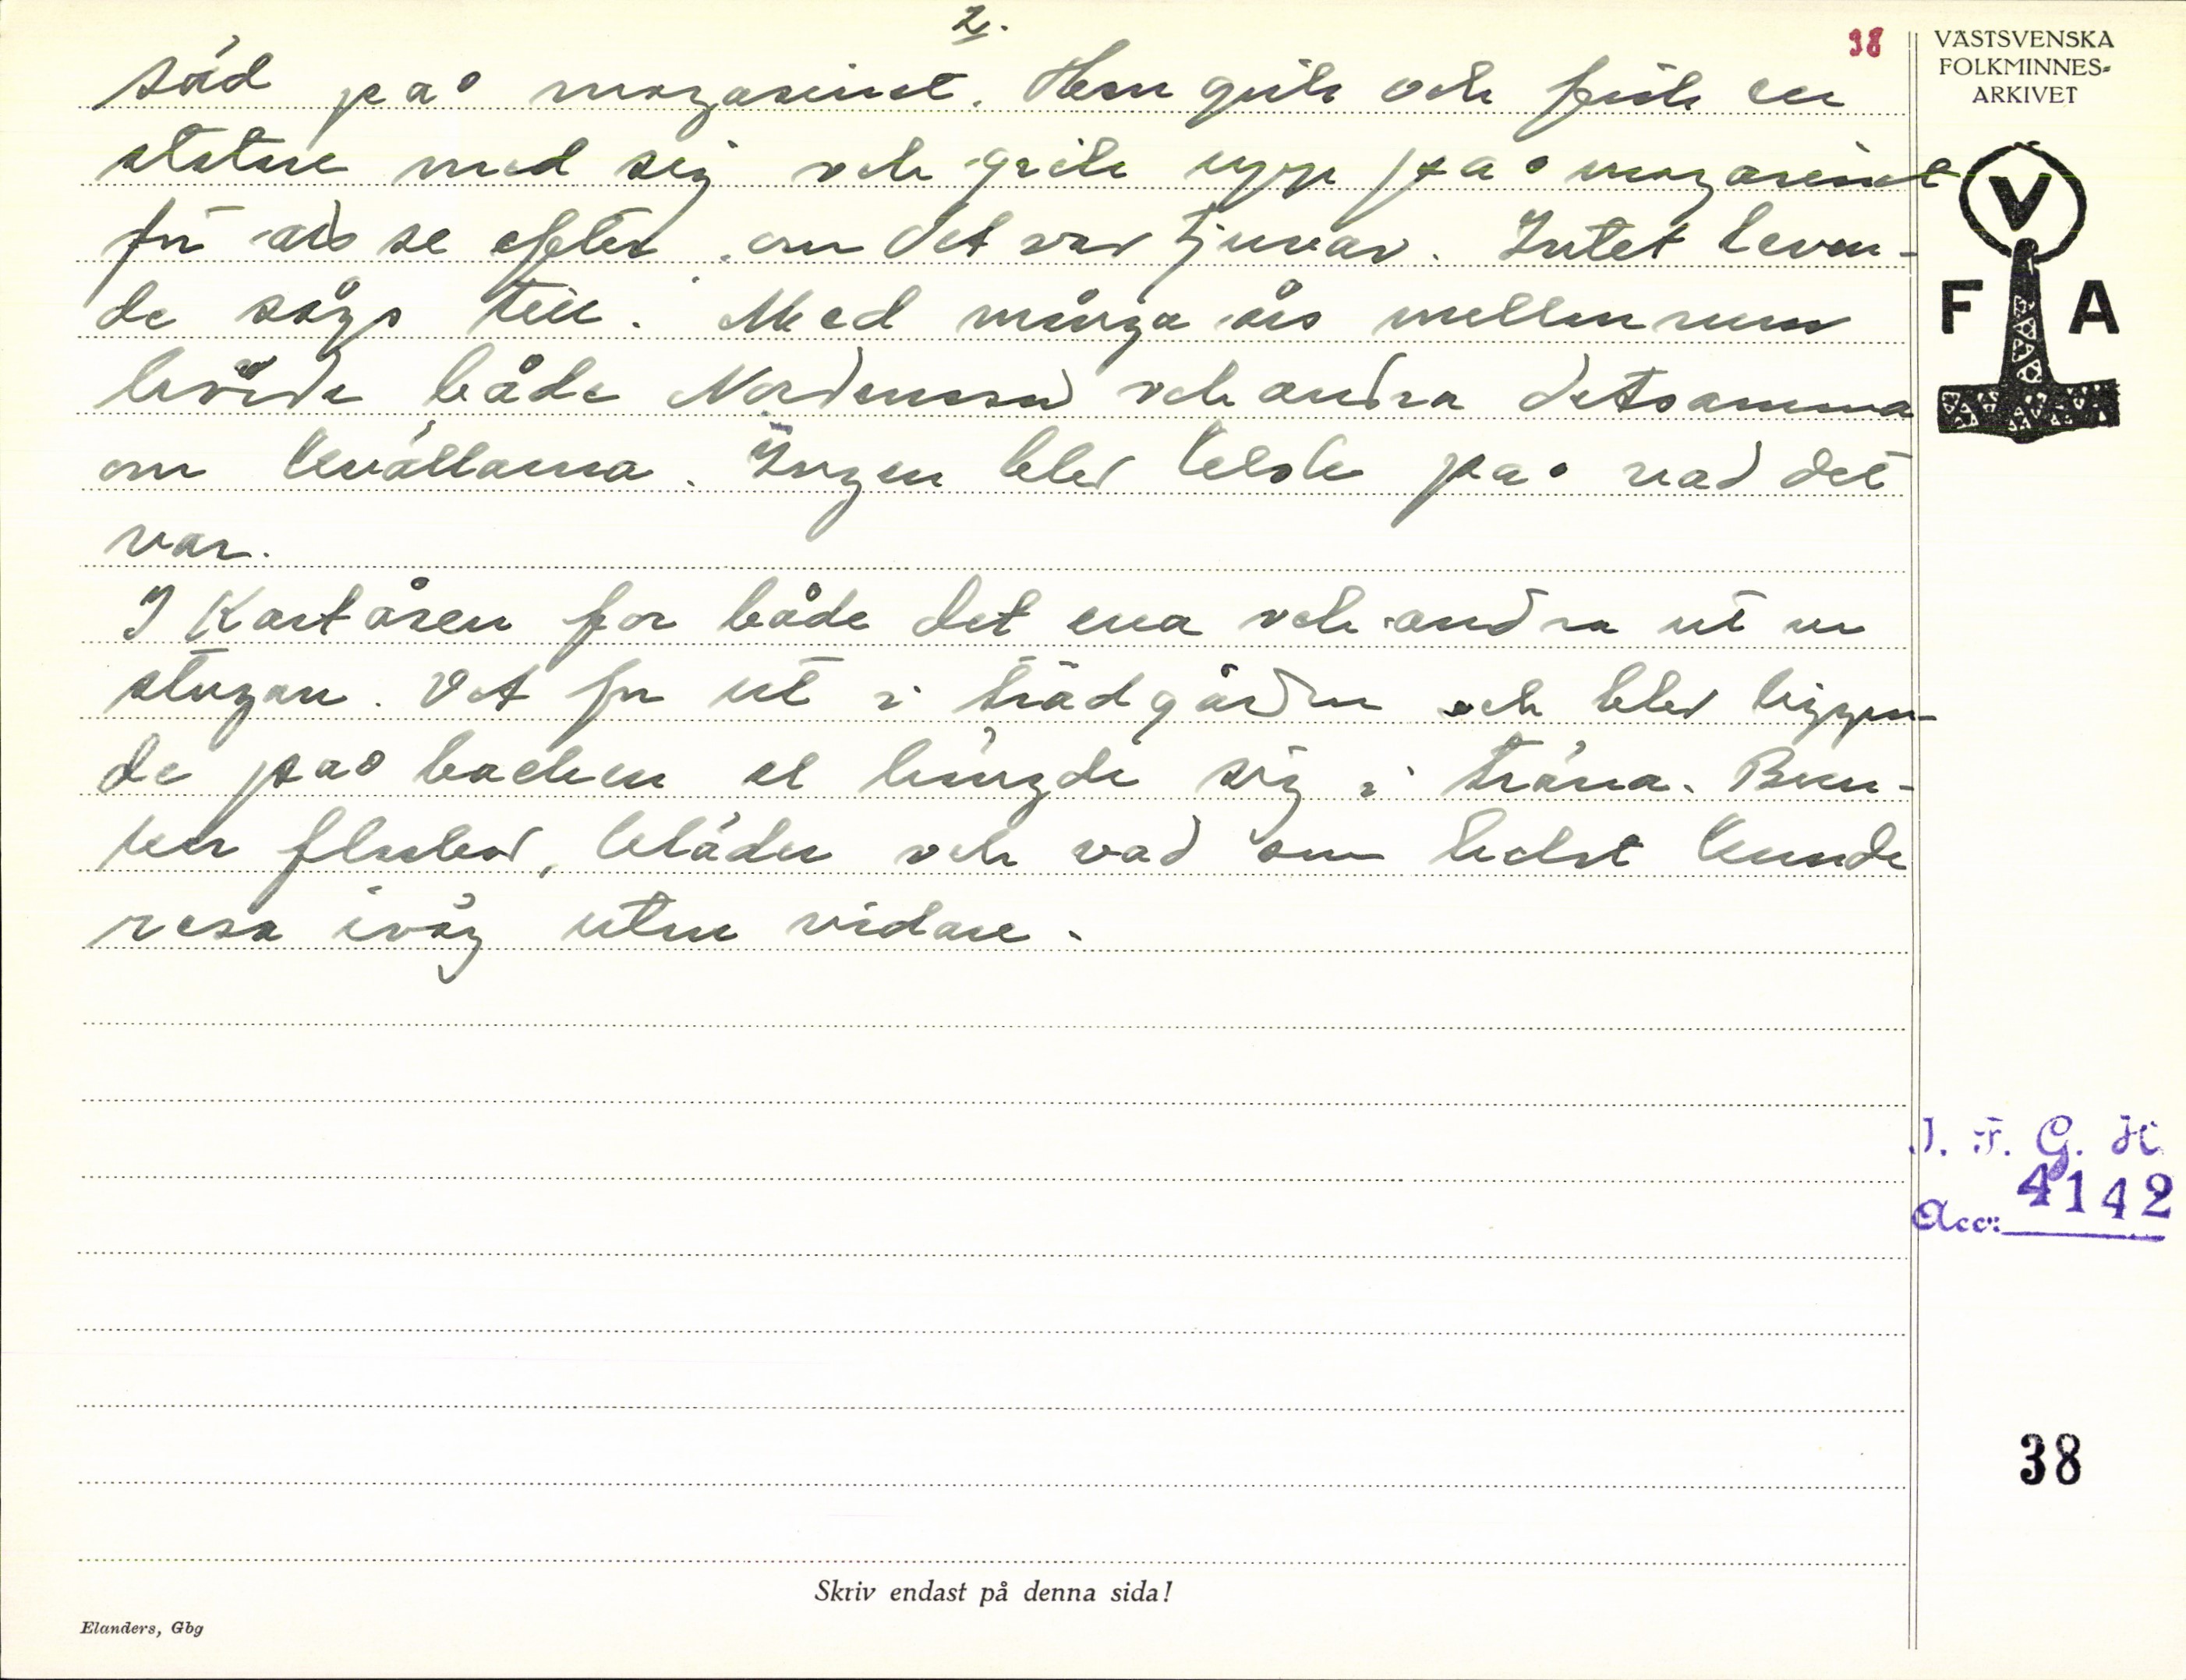 2.
38
säd på magasinet. Han gick och fick en
statare med sig och gick upp på magasinet
för att se efter om det var tjuvar. Intet levan-
de sågs till. Med många års mellanrum
hörde både Nordenson och andra detsamma
om kvällarna. Ingen blev klok på vad det
var.
I Kartåsen for både det ena och andra ut ur
stugan. Det for ut i trädgården och blev liggan-
de på backen el hängde sig i träna. Bun-
kar flaskor, kläder och vad som helst kunde
resa iväg utan vidare.
VÄSTSVENSKA
FOLKMINNES-
ARKIVET
V
F A
I. F. G. H
Acc: 4142
38
Skriv endast på denna sida!
Elanders, Gbg